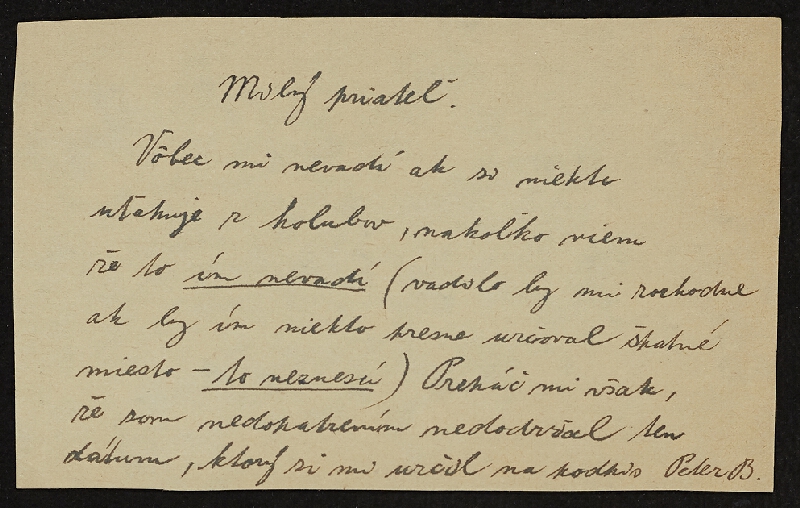 Milý priateľ.
Vôbec mi nevadí ak si niekto
uťahuje z holubov, nakoľko viem
že to ím nevadí (vadilo by mi rozhodne
ak by ím niekto presne určoval štatné
miesto – to neznesú) Prepáč mi však,
že som nedopatrením nedodržal ten
dátum, ktorý si mi určil na podpis Peter B.